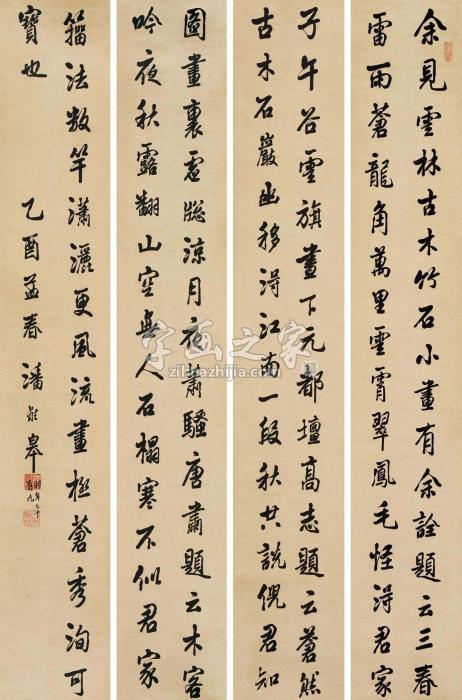 余見雲林古木竹石小畫有余詮題云三春
雷雨蒼龍角萬里雲霄翠鳳毛怪得君家
子午谷雲旗畫下元都壇高志題云蒼然
古木石巖幽移得江南一段秋共說倪君知
圖畫裏虛牕涼月夜蕭騷唐肅題云木客
吟夜秋露翻山空無人石榻寒不似君家
籀法數竿瀟灑更風流畫極蒼秀洵可
寶也
乙酉孟春潘齡皋
時年七十有九
字画之家
zihuazhijia.com